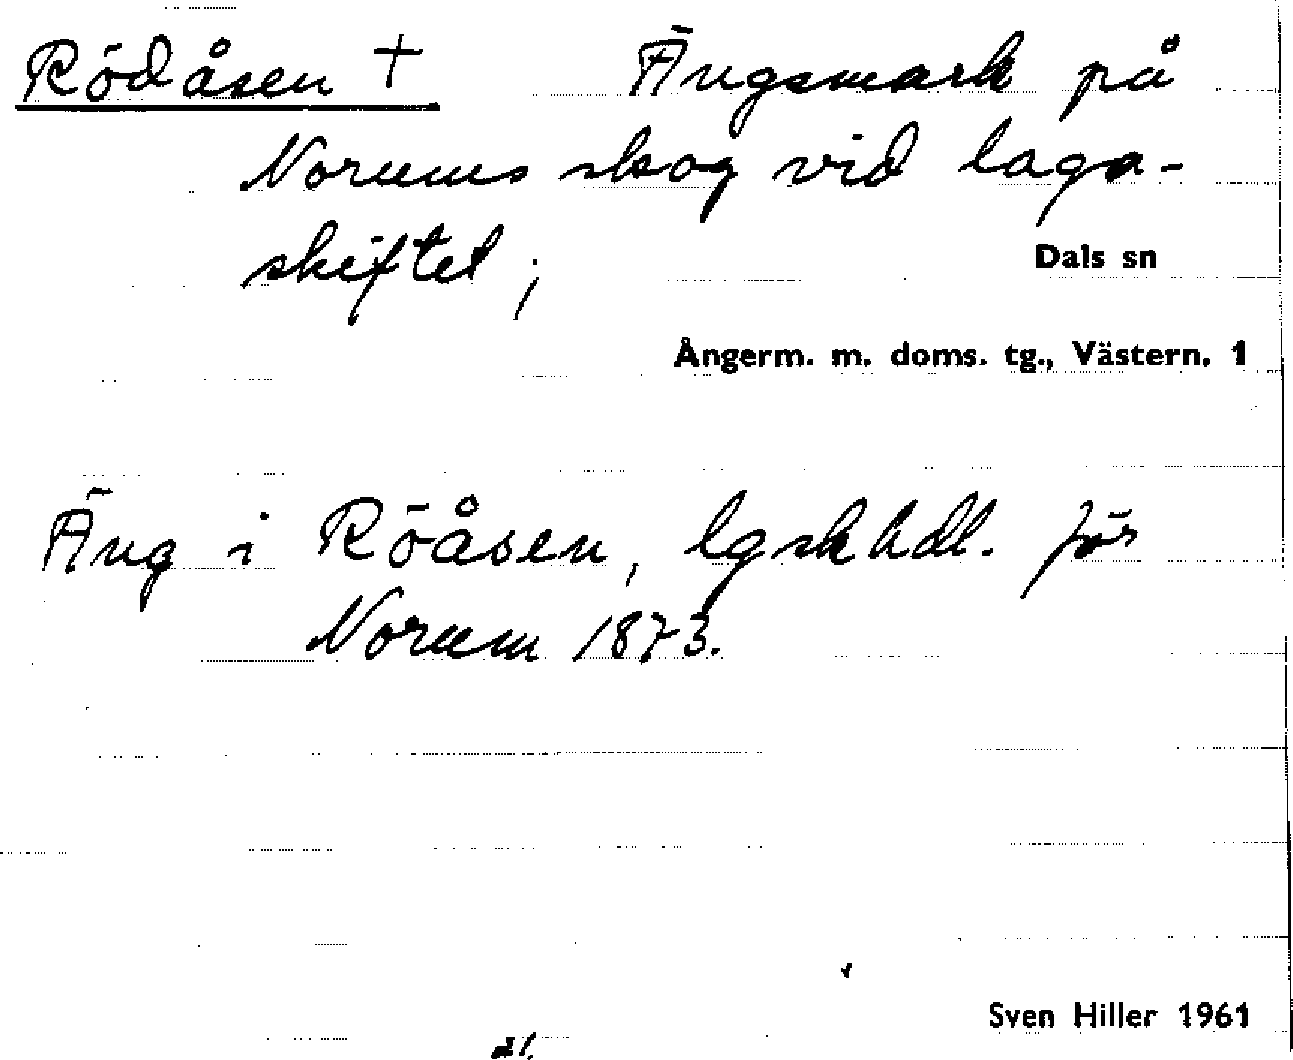 Rödåsen † Ängsmark på
Norums skog vid laga-
skiftet;
Dals sn
Ångerm. m. doms. tg., Västern. 1
Äng i Röåsen, lgskhdl. för
Norum 1873.
Sven Hiller 1961